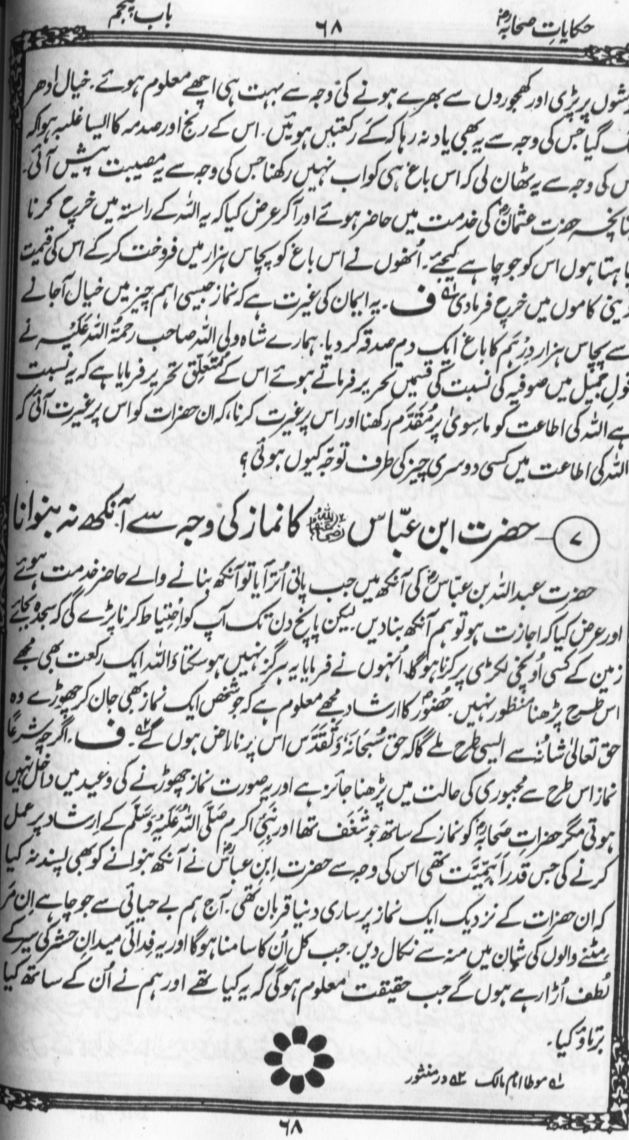 حکایاتِ صحابہؓ ۶۸ باب پنجم
پر پڑی اور کھجوروں سے بھرے ہونے کی وجہ سے بہت ہی اچھے معلوم ہوئے۔ خیال ادھر
گیا جس کی وجہ سے یہ بھی یاد نہ رہا کہ کَے رکعتیں ہوئیں۔ اس کے رنج اور صدمہ کا ایسا غلبہ ہوا کہ
کی وجہ سے یہ ٹھان لی کہ اس باغ ہی کو اب نہیں رکھنا جس کی وجہ سے یہ مصیبت پیش آئی۔
حضرت عثمانؓ کی خدمت میں حاضر ہوئے اور آکر عرض کیا کہ یہ اللہ کے راستہ میں خرچ کرنا
ہوں اس کو جو چاہے کیجیے۔ انھوں نے اس باغ کو پچاس ہزار میں فروخت کر کے اس کی قیمت
کاموں میں خرچ فرما دی لہ ف۔ یہ ایمان کی غیرت ہے کہ نماز جیسی اہم چیز میں خیال آجانے
سے پچاس ہزار درہم کا باغ ایک دم صدقہ کر دیا۔ ہمارے شاہ ولی اللہ صاحب رحمۃ اللہ علیہ نے
قولِ جمیل میں صوفیہ کی نسبت کی قسمیں تحریر فرماتے ہوئے اس کے متعلق تحریر فرمایا ہے کہ یہ نسبت
ہے اللہ کی اطاعت کو ماسویٰ پر مُقدَّم رکھنا اور اس پر غیرت کرنا، کہ ان حضرات کو اس پر غیرت آئی کہ
اللہ کی اطاعت میں کسی دوسری چیز کی طرف توجہ کیوں ہوئی؟
۷ — حضرت ابن عبّاس رضی اللہ عنہ کا نماز کی وجہ سے آنکھ نہ بنوانا
حضرت عبداللہ بن عباسؓ کی آنکھ میں جب پانی اُتر آیا تو آنکھ بنانے والے حاضر خدمت ہوئے
اور عرض کیا کہ اجازت ہو تو ہم آنکھ بنا دیں۔ لیکن پانچ دن تک آپ کو احتیاط کرنا پڑے گی کہ سجدہ بجائے
زمین کے کسی اُونچی لکڑی پر کرنا ہوگا۔ اُنہوں نے فرمایا یہ ہرگز نہیں ہو سکتا واللہ ایک رکعت بھی مجھے
اس طرح پڑھنا منظور نہیں۔ حضورؐ کا ارشاد مجھے معلوم ہے کہ جو شخص ایک نماز بھی جان کر چھوڑے وہ
حق تعالیٰ شانہٗ سے ایسی طرح ملے گا کہ حق سُبحانہٗ وَتَقَدَّس اس پر ناراض ہوں گے ۲ہ ف۔ اگرچہ شرعًا
نماز اس طرح سے مجبوری کی حالت میں پڑھنا جائز ہے اور یہ صورت نماز چھوڑنے کی وعید میں داخل نہیں
ہوتی مگر حضراتِ صحابہؓ کو نماز کے ساتھ جو شغف تھا اور نبیِ اکرم صَلَّی اللہُ عَلَیْہِ وَسَلَّم کے ارشاد پر عمل
کرنے کی جس قدر اہمیّت تھی اس کی وجہ سے حضرت ابن عباسؓ نے آنکھ بنوانے کو بھی پسند نہ کیا
کہ ان حضرات کے نزدیک ایک نماز پر ساری دنیا قربان تھی۔ آج ہم بے حیائی سے جو چاہے ان مر
مٹنے والوں کی شان میں منہ سے نکال دیں۔ جب کل اُن کا سامنا ہوگا اور یہ فدائی میدانِ حشر کی سیر کے
لُطف اُڑا رہے ہوں گے جب حقیقت معلوم ہوگی کہ یہ کیا تھے اور ہم نے اُن کے ساتھ کیا
برتاؤ کیا۔
لہ موطا امام مالک ۲ہ درمنثور
۶۸